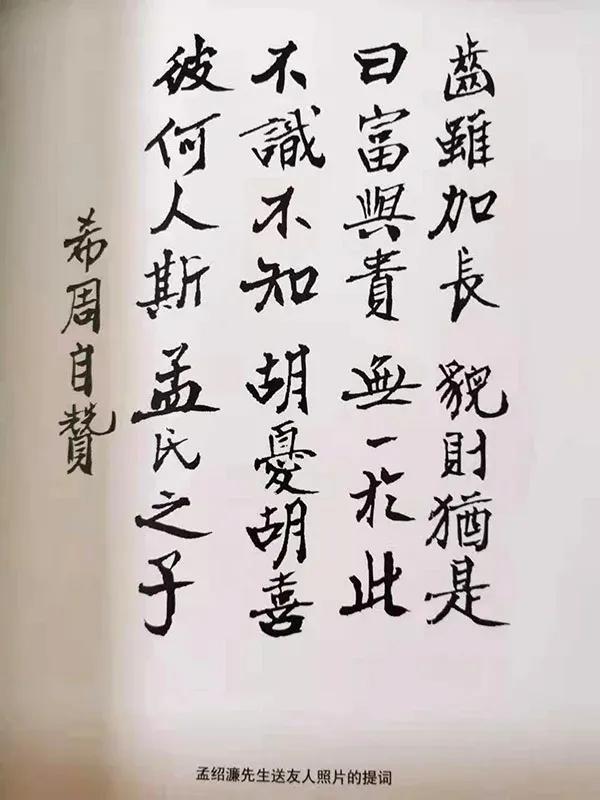 齒雖加長 貌則猶是
曰富與貴 無一於此
不識不知 胡憂胡喜
彼何人斯 孟氏之子
希周自贊
孟绍濂先生送友人照片的提词